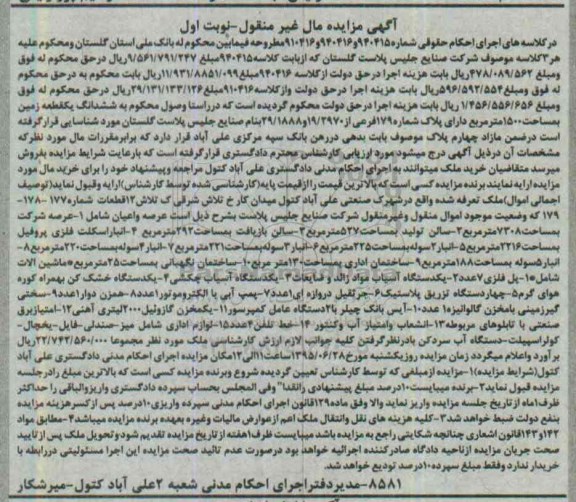 آگهی مزایده مال غیر منقول-نوبت اول
در کلاسه های اجرای احکام حقوقی شماره ۹۴۰۴۱۵و۹۴۰۴۱۶و۹۱۰۴۱۶مطروحه فیمابین محکوم له بانک ملی استان گلستان ومحکوم علیه
هر ۳کلاسه موصوف شرکت صنایع جلیس پلاست گلستان که ازبابت کلاسه ۹۴۰۴۱۵مبلغ ۹/۵۶۱/۷۹۱/۲۴۷ریال درحق محکوم له فوق
ومبلغ ۴۷۸/۰۸۹/۵۶۲ ریال بابت هزینه اجرا درحق دولت ازکلاسه ۹۴۰۴۱۶مبلغ ۱۱/۹۳۱/۸۸۵۱/۰۹۹ریال بابت محکوم به درحق محکوم
له فوق ومبلغ ۵۹۶/۵۹۲/۵۵۴ریال بابت هزینه اجرا درحق دولت وازکلاسه ۹۱۰۴۱۶مبلغ ۲۹/۱۳۱/۱۳۳/۱۲۶ریال درحق محکوم له فوق
ومبلغ ۱/۴۵۶/۵۵۶/۶۵۶ ریال بابت هزینه اجرا درحق دولت محکوم گردیده است که درراستا وصول محکوم به ششدانگ یکقطعه زمین
بمساحت ۱۵۰۰مترمربع دارای پلاک شماره ۱۷۹فرعی از۱۹/۲۹۷۰و۲۹/۱۸۸۸بنام صنایع جلیس پلاست گلستان مورد شناسایی قرارگرفته
است درضمن مازاد چهارم پلاک موصوف بابت بدهی دررهن بانک سپه مرکزی علی آباد قرار دارد که برابرمقررات مال مورد نظرکه
مشخصات آن درذیل آگهی درج میشود مورد ارزیابی کارشناس محترم دادگستری قرارگرفته است که بارعایت شرایط مزایده بفروش
میرسد متقاضیان خرید ملک میتوانند به اجرای احکام مدنی دادگستری علی آباد کتول مراجعه وپیشنهاد خود را برای خرید مال مورد
مزایده ارایه نمایند برنده مزایده کسی است که بالاترین قیمت را ازقیمت پایه(کارشناسی شده توسط کارشناس)ارایه وقبول نماید(توصیف
اجمالی اموال)ملک تعرفه شده واقع درشهرک صنعتی علی آباد کتول میدان کار خ تلاش شرقی ک تلاش ۱۲قطعات شماره ۱۷۷-۱۷۸-
۱۷۹ که وضعیت موجود اموال منقول وغیرمنقول شرکت صنایع جلیس پلاست بشرح ذیل است عرصه واعیان شامل ۱-عرصه شرکت
بمساحت ۷۳۰۸مترمربع ۲-سالن تولید بمساحت ۵۲۷مترمربع ۳-سالن بازیافت بمساحت ۲۹۲مترمربع ۴-انباراسکلت فلزی پروفیل
بمساحت ۲۲۱۶مترمربع ۵-انبار ۲سوله بمساحت ۲۲۵مترمربع ۶-انبار ۳سوله بمساحت ۲۲۱مترمربع ۷-انبار ۴سوله بمساحت ۲۲۰مترمربع ۸-
انبار ۵سوله بمساحت ۱۸۸مترمربع ۹-ساختمان اداری بمساحت ۱۳۰متر مربع ۱۰-ساختمان نگهبانی بمساحت ۲۵مترمربع*ماشین الات
شامل*۱-پل فلزی ۷عدد ۲-یکدستگاه آسیاب مواد زائد و ضایعات ۳-یکدستگاه آسیاب چکشی ۴-یکدستگاه خشک کن بهمراه کوره
هوای گرم ۵-چهاردستگاه تزریق پلاستیک ۶-جرثقیل دروازه ای ۱عدد ۷-پمپ آبی با الکتروموتور ۱عدد ۸-همزن دوار ۱عدد ۹-سختی
گیرزمینی بامخزن گالوانیزه ۱ عدد ۱۰-آیس بانک چیلر با ۲دستگاه عامل کمپرسور ۱۱-یکمخزن گازوئیل ۲۰۰۰لیتری آهنی ۱۲-امتیازبرق
صنعتی با تابلوهای مربوطه ۱۳-انشعاب وامتیاز آب وکنتور ۱۴-خط تلفن ۴عدد ۱۵-لوازم اداری شامل میز-صندلی-فایل-یخچال-
کولراسپیلت-دستگاه آب سردکن بادرنظرگرفتن کلیه جوانب لازم ارزش کارشناسی ملک مورد نظر مجموعا ۲۲/۷۴۲/۵۶۰/۰۰۰ریال
برآورد واعلام میگردد زمان مزایده روزیکشنبه مورخ ۱۳۹۵/۰۶/۲۸ساعت ۱۱الی ۱۲مکان مزایده اجرای احکام مدنی دادگستری علی آباد
کتول(شرایط مزایده)۱-مزایده ازمبلغی که توسط کارشناس تعیین گردیده شروع وبرنده مزایده کسی است که بالاترین مبلغ رادرجلسه
مزایده قبول نماید ۲-برنده میبایست ۱۰درصد مبلغ پیشنهادی رانقدا" وفی المجلس بحساب سپرده دادگستری واریزوالباقی را حداکثر
ظرف ۱ماه از تاریخ جلسه مزایده واریز نماید والا وفق ماده ۱۲۹قانون اجرای احکام مدنی سپرده واریزی ۱۰درصد پس از کسرهزینه مزایده
بنفع دولت ضبط خواهد شد ۳-کلیه هزینه های نقل وانتقال ملک اعم ازعوارض مالیات وغیره بعهده برنده مزایده میباشد ۴-مطابق مواد
۱۴۲و۱۴۳قانون اشعاری چنانچه شکایتی راجع به مزایده باشد میبایست ظرف ۱هفته از تاریخ مزایده تقدیم شود وتحویل ملک پس ازتایید
صحت جریان مزایده ازناحیه دادگاه صادرکننده اجرائیه خواهد بود درصورت عدم تائید صحت مزایده این اجرا مسئولیتی دررابطه با
خریدار ندارد وفقط مبلغ سپرده ۱۰درصد تودیع خواهد شد.
۸۵۸۱-مدیردفتراجرای احکام مدنی شعبه ۲علی آباد کتول-میرشکار